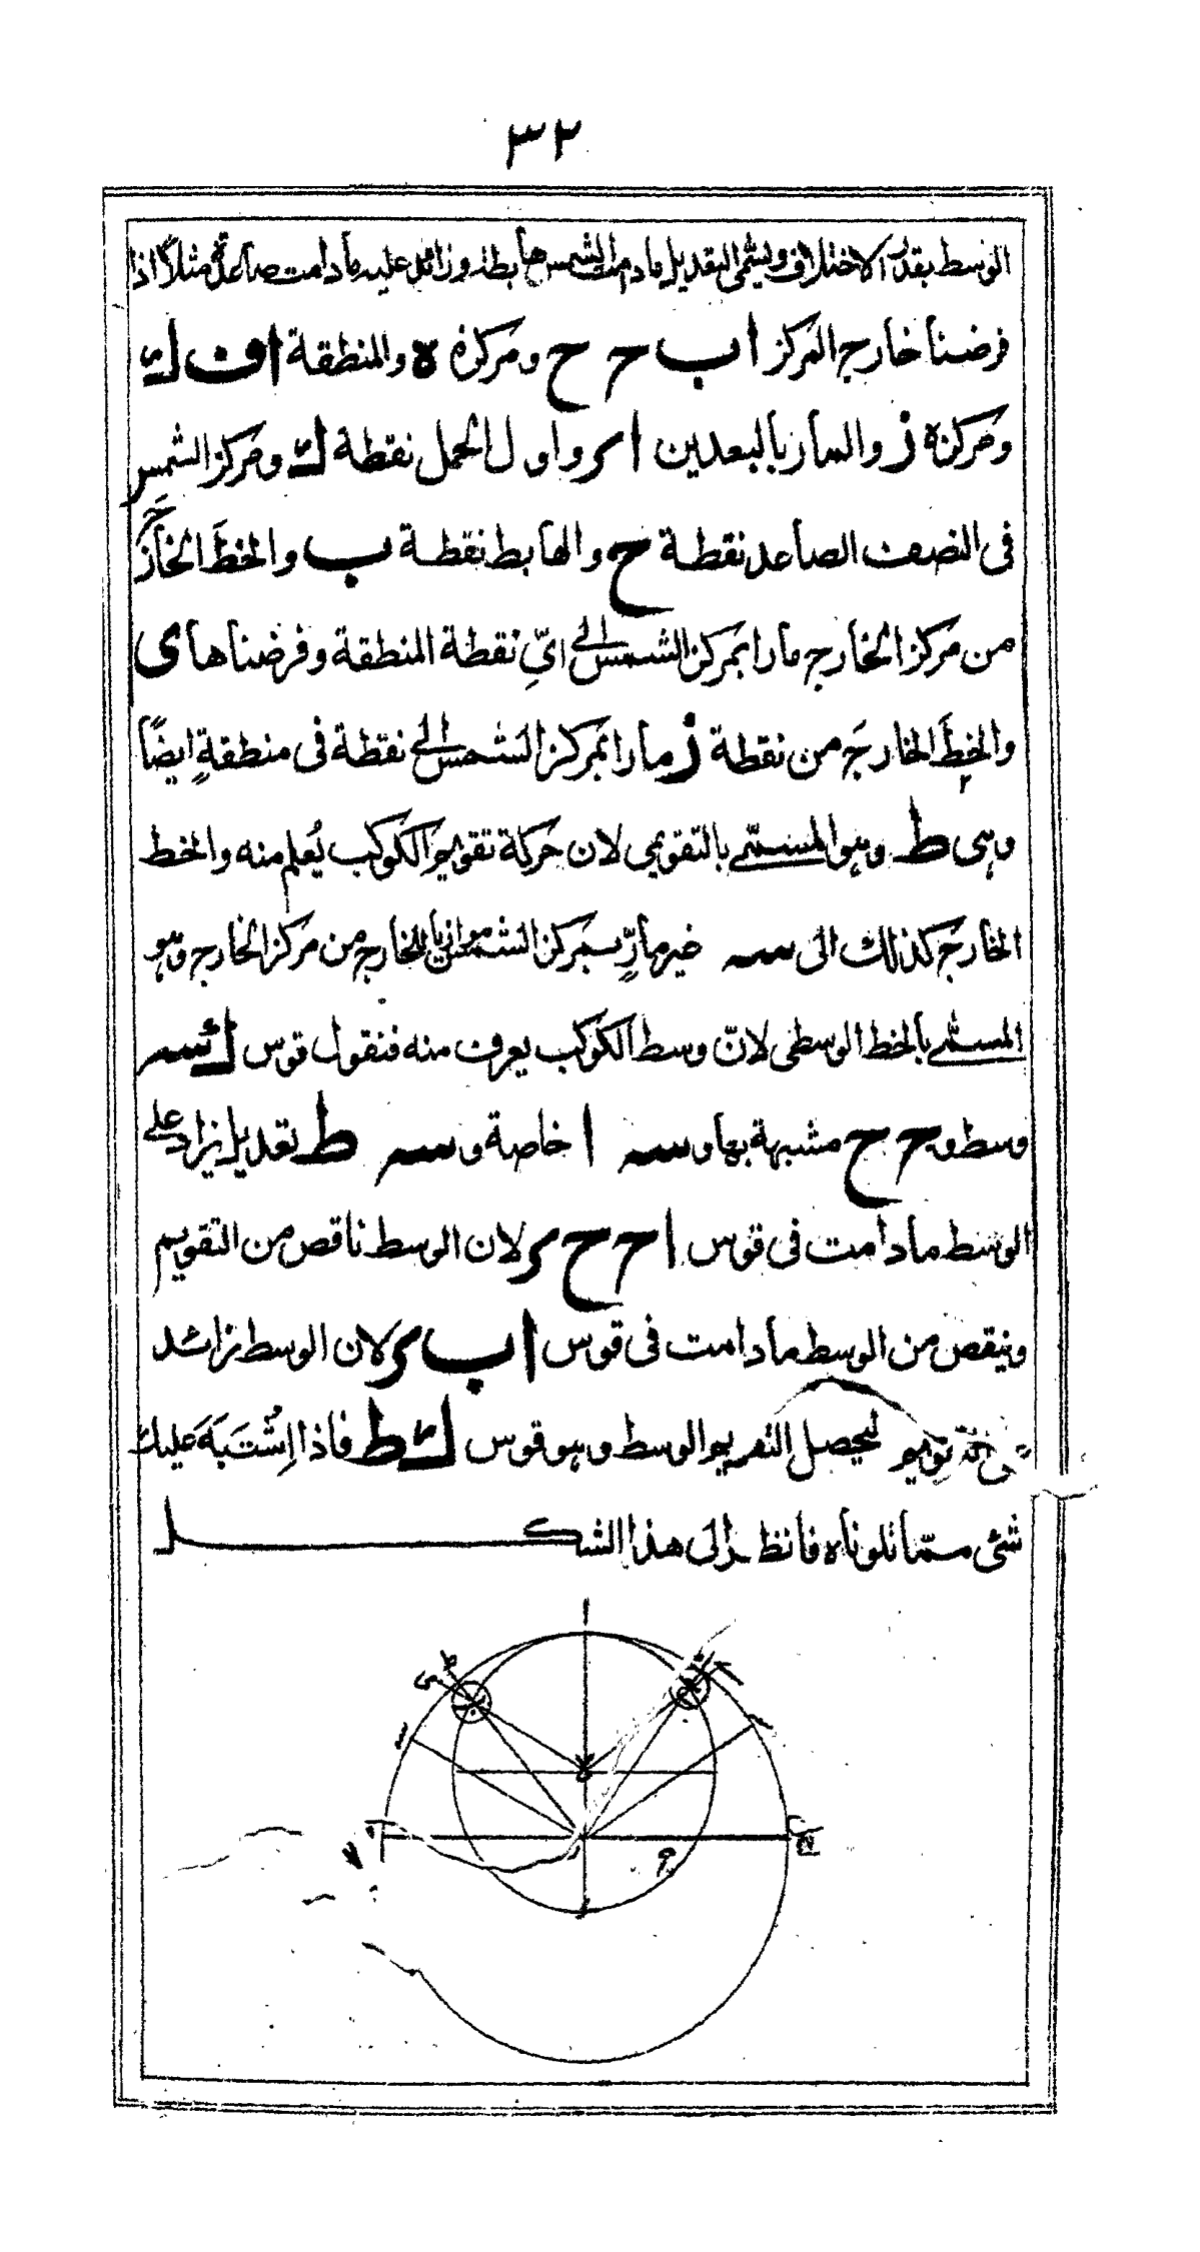 ٣٢
الوسط بقدر الاختلاف ويسمى التعديل مادامت الشمس هابطة وزائل عليه مادامت صاعدة مثلاً اذا
فرضنا خارج المركز ا ب ح ح ومركزه ه والمنطقة ا ف ك
ومركزه ز والمار بالبعدين ا ر واول الحمل نقطة ك ومركز الشمس
فى النصف الصاعد نقطة ح والهابط نقطة ب والخط الخارج
من مركز الخارج مارا بمركز الشمس الى اىّ نقطة المنطقة وفرضناها ى
والخط الخارج من نقطة ز مارا بمركز الشمس الى نقطة فى منطقةٍ ايضًا
وهى ط وهو المسمّى بالتقويمى لان حركة تقويم الكوكب يُعلم منه والخط
الخارج كذلك الى سـه غير مارٍّ بمركز الشمس موازيا للخارج من مركز الخارج وهو
المسمّى بالخط الوسطى لانّ وسط الكوكب يعرف منه فنقول قوس ك سـه
وسط و ح ح مشبهة بها و سـه ا خاصة و سـه ط تعديل يزاد على
الوسط مادامت فى قوس ا ح ح ر لان الوسط ناقص من التقويم
وينقص من الوسط مادامت فى قوس ا ب ر لان الوسط زائد
ليحصل الوسط وهو قوس ك ط فاذا اِشْتَبَهَ عليك
شئ ممّا تلوناه فانظر الى هذا الشكل
ا
ط
ى
ه
ر